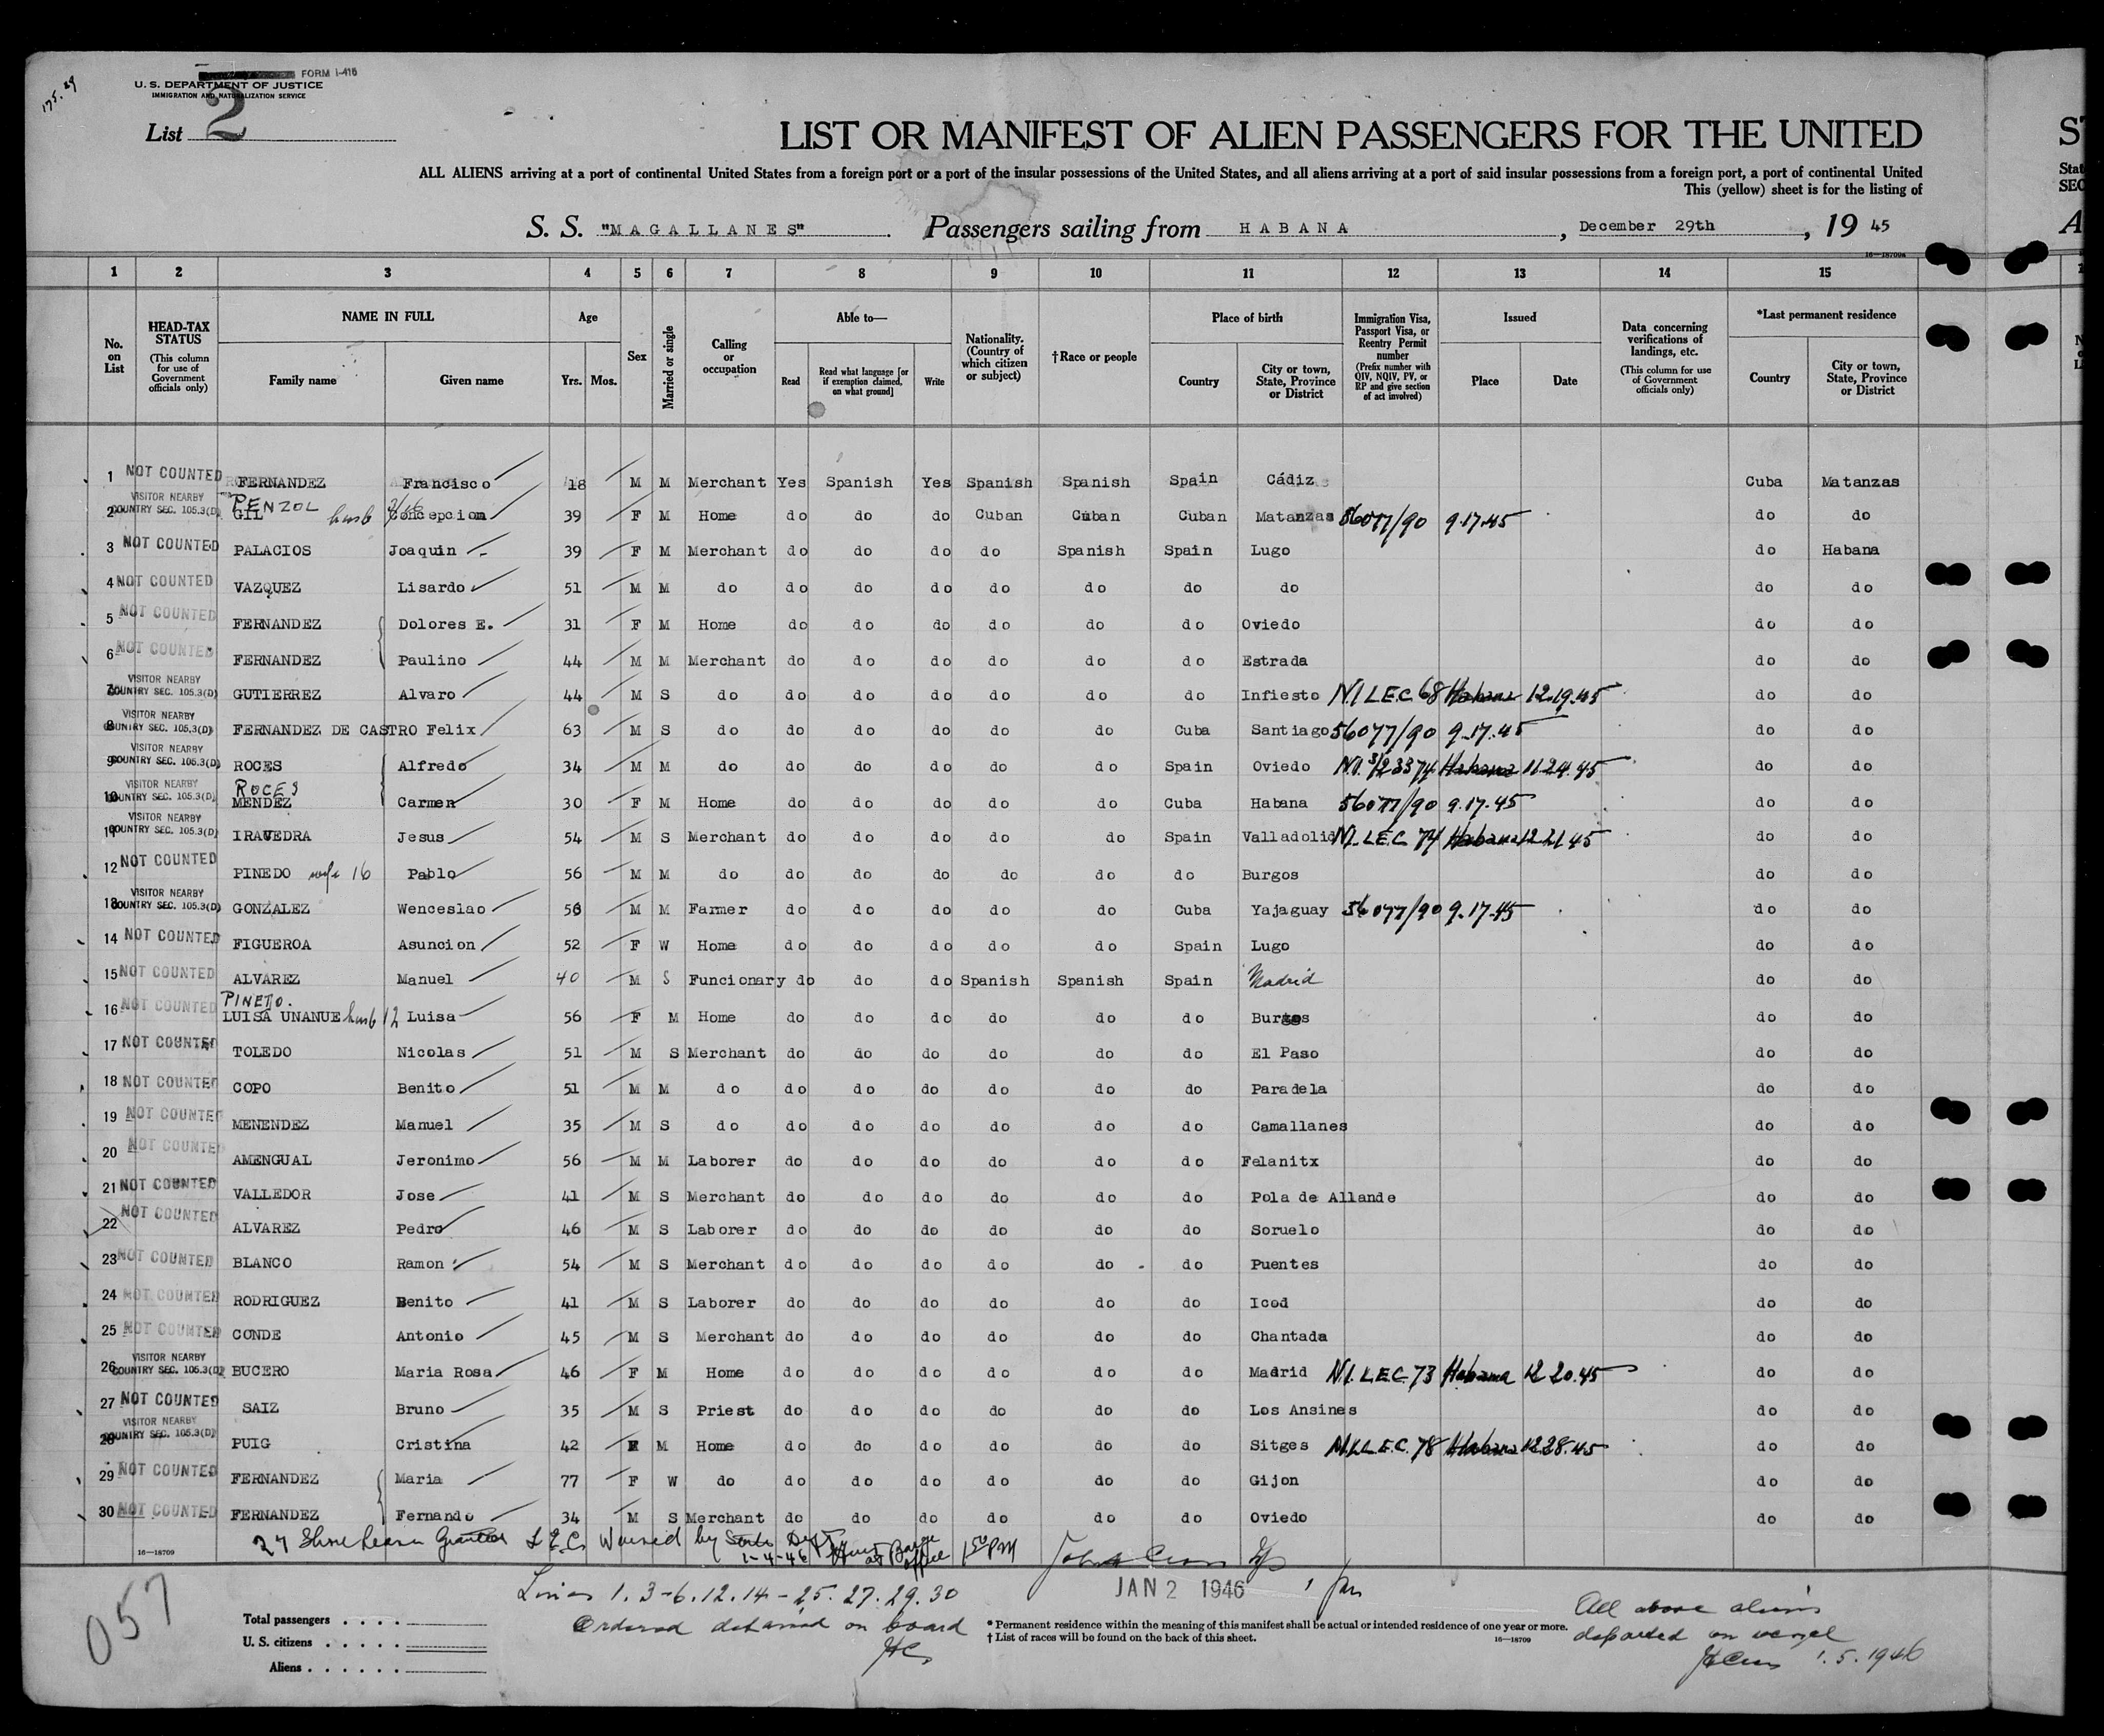 175.29
FORM I-416
U. S. DEPARTMENT OF JUSTICE
IMMIGRATION AND NATURALIZATION SERVICE
List 2
LIST OR MANIFEST OF ALIEN PASSENGERS FOR THE UNITED
ALL ALIENS arriving at a port of continental United States from a foreign port or a port of the insular possessions of the United States, and all aliens arriving at a port of said insular possessions from a foreign port, a port of continental United
This (yellow) sheet is for the listing of
S. S. "MAGALLANES" . Passengers sailing from HABANA , December 29th , 19 45
16—18709a
1 2 3 4 5 6 7 8 9 10 11 12 13 14 15
No. on List
HEAD-TAX STATUS (This column for use of Government officials only)
NAME IN FULL
Family name Given name
Age
Yrs. Mos.
Sex
Married or single
Calling or occupation
Able to—
Read Read what language [or if exemption claimed, on what ground] Write
Nationality. (Country of which citizen or subject)
†Race or people
Place of birth
Country City or town, State, Province or District
Immigration Visa, Passport Visa, or Reentry Permit number (Prefix number with QIV, NQIV, PV, or RP and give section of act involved)
Issued
Place Date
Data concerning verifications of landings, etc. (This column for use of Government officials only)
*Last permanent residence
Country City or town, State, Province or District
1 NOT COUNTED FERNANDEZ Francisco 18 M M Merchant Yes Spanish Yes Spanish Spanish Spain Cádiz Cuba Matanzas
VISITOR NEARBY PENZOL
2 COUNTRY SEC. 105.3(D) GIL husb Concepcion 39 F M Home do do do Cuban Cuban Cuban Matanzas 56077/90 9.17.45 do do
3 NOT COUNTED PALACIOS Joaquin 39 F M Merchant do do do do Spanish Spain Lugo do Habana
4 NOT COUNTED VAZQUEZ Lisardo 51 M M do do do do do do do do do do
5 NOT COUNTED FERNANDEZ Dolores E. 31 F M Home do do do do do do Oviedo do do
6 NOT COUNTED FERNANDEZ Paulino 44 M M Merchant do do do do do do Estrada do do
VISITOR NEARBY
7 COUNTRY SEC. 105.3(D) GUTIERREZ Alvaro 44 M S do do do do do do do Infiesto N.I. L.E.C. 68 Habana 12.19.45 do do
VISITOR NEARBY
8 COUNTRY SEC. 105.3(D) FERNANDEZ DE CASTRO Felix 63 M S do do do do do do Cuba Santiago 56077/90 9.17.45 do do
VISITOR NEARBY
9 COUNTRY SEC. 105.3(D) ROCES Alfredo 34 M M do do do do do do Spain Oviedo Habana 11.24.45 do do
VISITOR NEARBY ROCES
10 COUNTRY SEC. 105.3(D) MENDEZ Carmen 30 F M Home do do do do do Cuba Habana 56077/90 9.17.45 do do
VISITOR NEARBY
11 COUNTRY SEC. 105.3(D) IRAVEDRA Jesus 54 M S Merchant do do do do do Spain Valladolid N.I. L.E.C. 74 Habana 12 21.45 do do
12 NOT COUNTED PINEDO wife 16 Pablo 56 M M do do do do do do do Burgos do do
VISITOR NEARBY
13 COUNTRY SEC. 105.3(D) GONZALEZ Wenceslao 56 M M Farmer do do do do do Cuba Yajaguay 56077/90 9.17.45 do do
14 NOT COUNTED FIGUEROA Asuncion 52 F W Home do do do do do Spain Lugo do do
15 NOT COUNTED ALVAREZ Manuel 40 M S Funcionary do do do Spanish Spanish Spain Madrid do do
PINEDO.
16 NOT COUNTED LUISA UNANUE husb 12 Luisa 56 F M Home do do do do do do Burgos do do
17 NOT COUNTED TOLEDO Nicolas 51 M S Merchant do do do do do do El Paso do do
18 NOT COUNTED COPO Benito 51 M M do do do do do do do Paradela do do
19 NOT COUNTED MENENDEZ Manuel 35 M S do do do do do do do Camallanes do do
20 NOT COUNTED AMENGUAL Jeronimo 56 M M Laborer do do do do do do Felanitx do do
21 NOT COUNTED VALLEDOR Jose 41 M S Merchant do do do do do do Pola de Allande do do
22 NOT COUNTED ALVAREZ Pedro 46 M S Laborer do do do do do do Soruelo do do
23 NOT COUNTED BLANCO Ramon 54 M S Merchant do do do do do do Puentes do do
24 NOT COUNTED RODRIGUEZ Benito 41 M S Laborer do do do do do do Icod do do
25 NOT COUNTED CONDE Antonio 45 M S Merchant do do do do do do Chantada do do
VISITOR NEARBY
26 COUNTRY SEC. 105.3(D) BUCERO Maria Rosa 46 F M Home do do do do do do Madrid N.I. L.E.C. 73 Habana 12 20.45 do do
27 NOT COUNTED SAIZ Bruno 35 M S Priest do do do do do do Los Ansines do do
VISITOR NEARBY
28 COUNTRY SEC. 105.3(D) PUIG Cristina 42 F M Home do do do do do do Sitges N.I. L.E.C. 78 Habana 12 28.45 do do
29 NOT COUNTED FERNANDEZ Maria 77 F W do do do do do do do Gijon do do
30 NOT COUNTED FERNANDEZ Fernando 34 M S Merchant do do do do do do Oviedo do do
27 Shore Leave Granted L.E.C. Waived by State Dept
1-4-46 at Barge Office 1 50 PM
16—18709
JAN 2 1946
057
Lines 1. 3-6. 12. 14-25. 27. 29. 30
Ordered detained on board
Total passengers . . . .
U. S. citizens . . . . .
Aliens . . . . . .
* Permanent residence within the meaning of this manifest shall be actual or intended residence of one year or more.
† List of races will be found on the back of this sheet.
16—18709
All above aliens
departed on vessel
1.5.1946